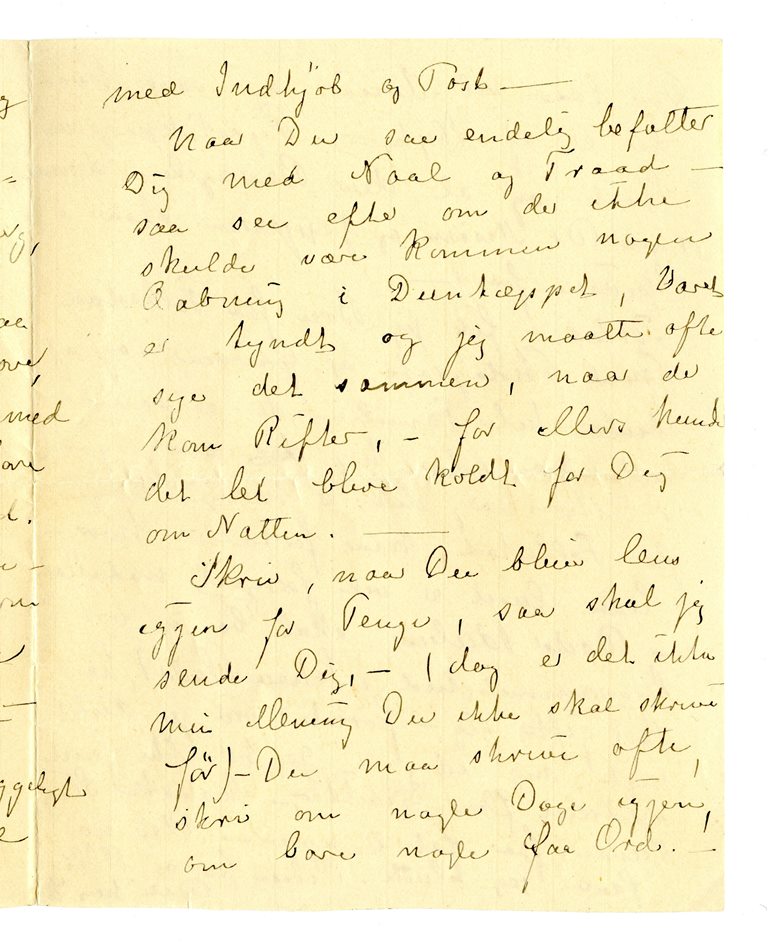 med Indkjöb og Post —
Naar Du saa endelig befatter
Dig med Naal og Traad —
saa see efter om der ikke
skulde være kommen nogen
Aabning i Duuntæppet, Varet
er tyndt og jeg maatte ofte
sye det sammen, naar der
kom Rifter, – for ellers kunde
det let blive koldt for Dig
om Natten. —
Skriv, naar Du bliver lens
igjen for Penge, saa skal jeg
sende Dig, – (dog er det ikke
min Mening Du ikke skal skrive
för) – Du maa skrive ofte,
skriv om nogle Dage igjen,
om bare nogle faa Ord. –
med
yggeligt